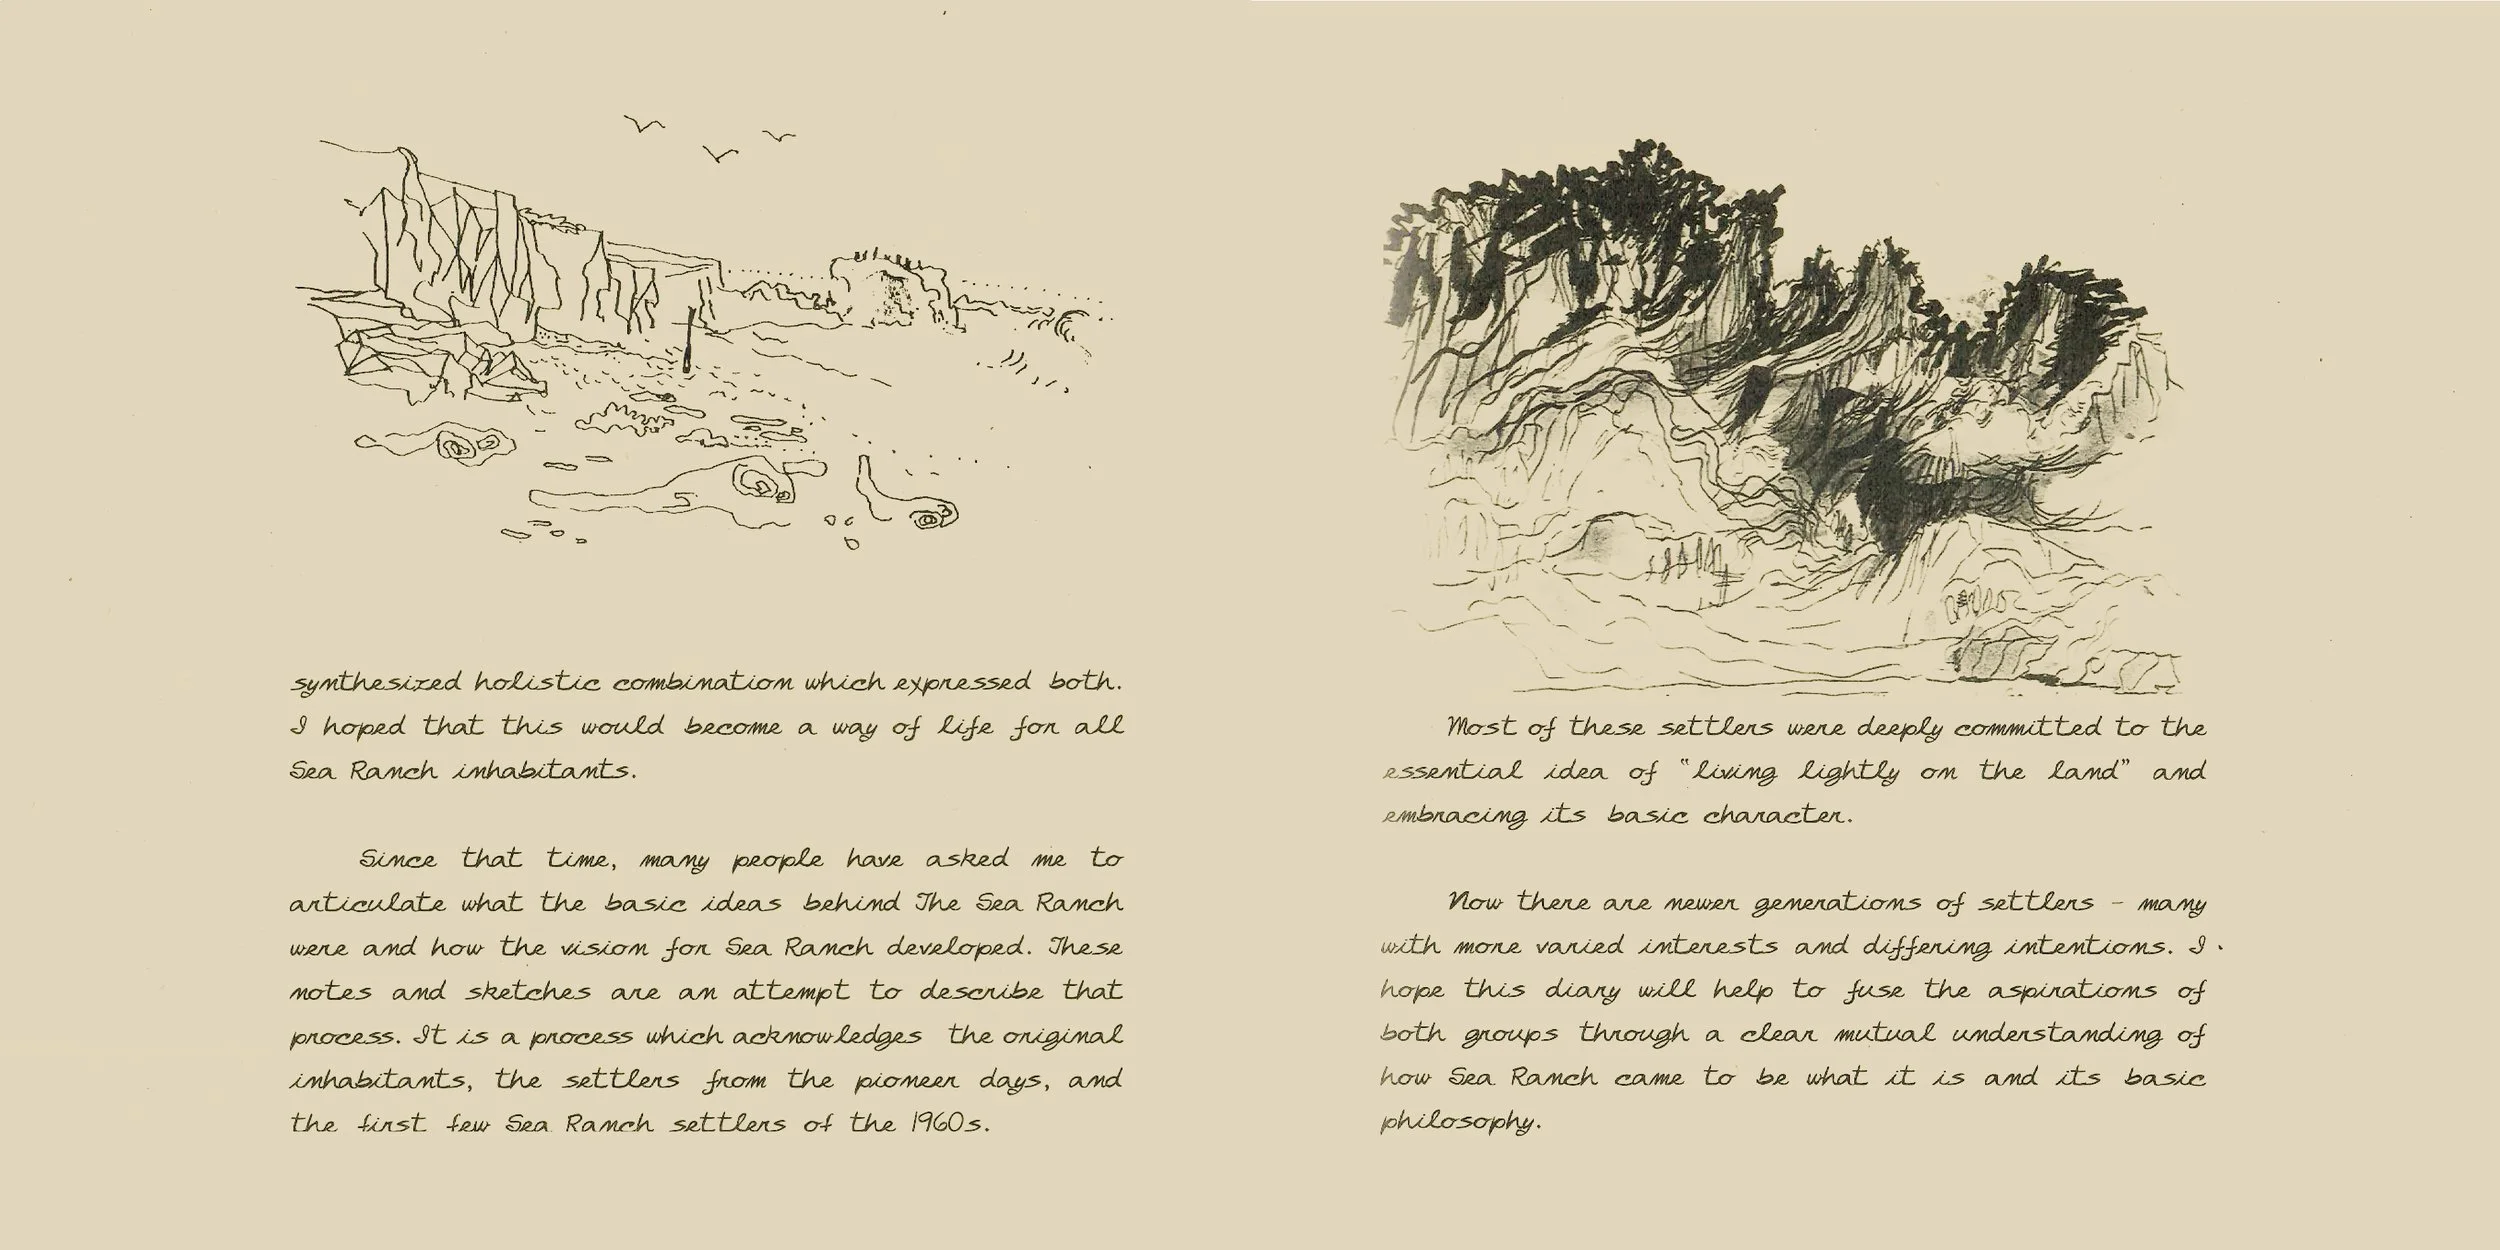 synthesized holistic combination which expressed both.
I hoped that this would become a way of life for all
Sea Ranch inhabitants.
Since that time, many people have asked me to
articulate what the basic ideas behind The Sea Ranch
were and how the vision for Sea Ranch developed. These
notes and sketches are an attempt to describe that
process. It is a process which acknowledges the original
inhabitants, the settlers from the pioneer days, and
the first few Sea Ranch settlers of the 1960s.
Most of these settlers were deeply committed to the
essential idea of "living lightly on the land" and
embracing its basic character.
Now there are newer generations of settlers - many
with more varied interests and differing intentions. I
hope this diary will help to fuse the aspirations of
both groups through a clear mutual understanding of
how Sea Ranch came to be what it is and its basic
philosophy.